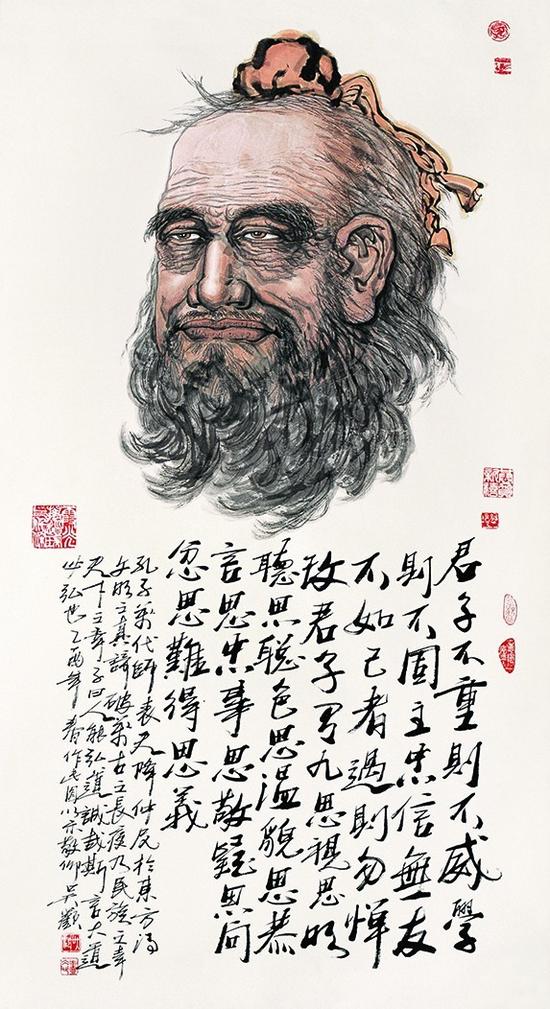 君子不重則不威學
則不固主忠信無友
不如己者過則勿憚
改君子有九思視思明
聽思聰色思溫貌思恭
言思忠事思敬疑思問
忿思難得思義
孔子萬代師表天降仲尼於東方得
文明之真諦破萬古之長夜乃民族之幸
天下之幸子曰人能弘道誠哉斯言大道
必弘也乙酉年春作此圖以示敬仰吳歡